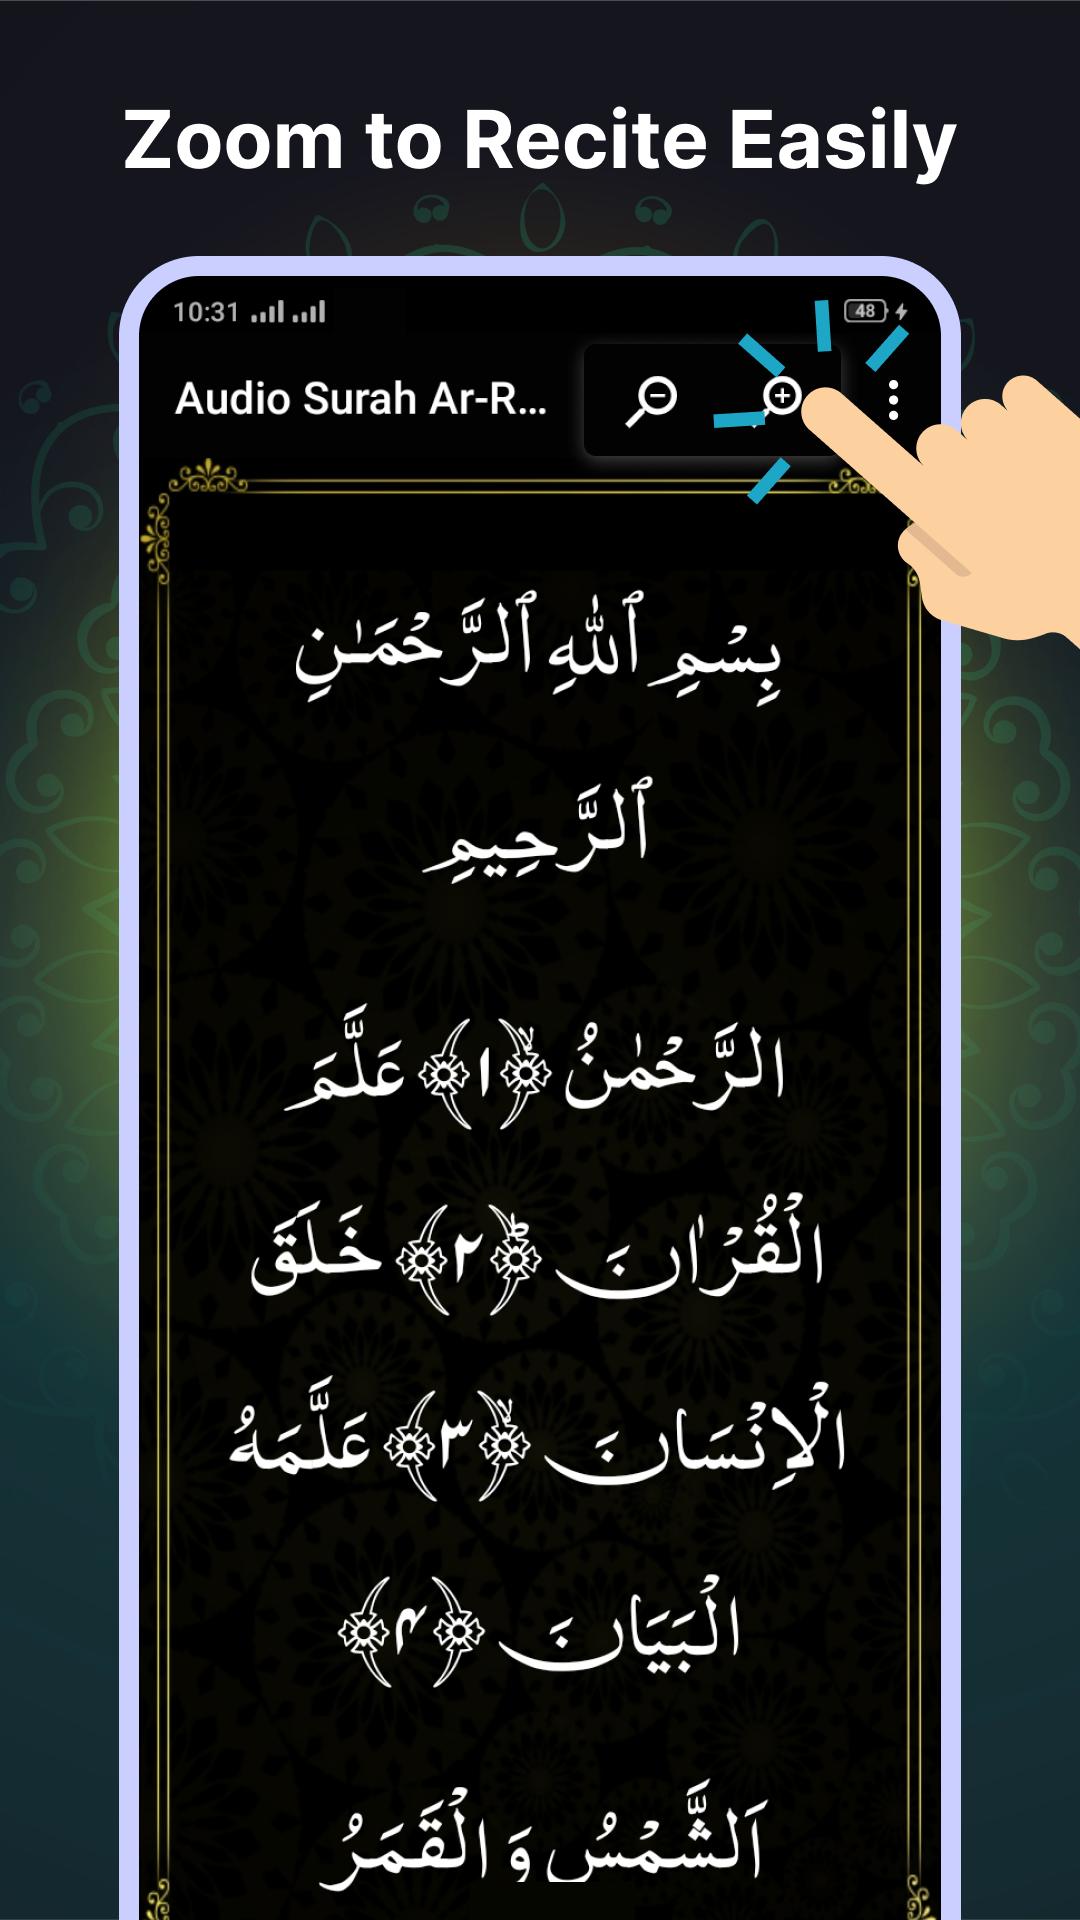 Zoom to Recite Easily
10:31
48
Audio Surah Ar-R...
بِسْمِ ٱللَّهِ ٱلرَّحْمَـٰنِ
ٱلرَّحِيمِ
الرَّحْمٰنُ ﴿ۙ۱﴾ عَلَّمَ
الْقُرْاٰنَ ﴿ؕ۲﴾ خَلَقَ
الْاِنْسَانَ ﴿ۙ۳﴾ عَلَّمَهُ
الْبَيَانَ ﴿۴﴾
اَلشَّمْسُ وَ الْقَمَرُ